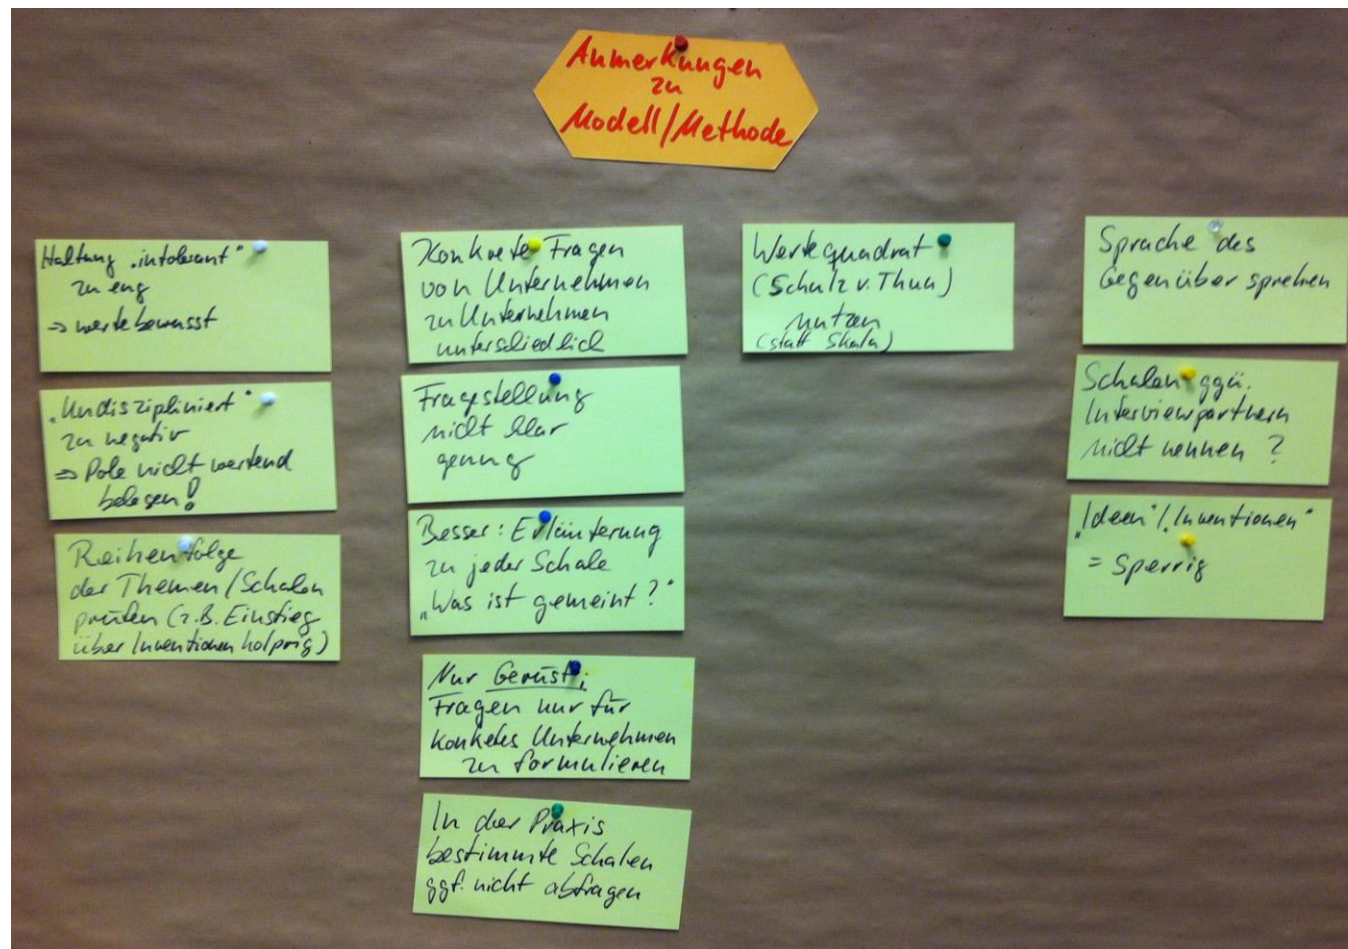 Anmerkungen
zu
Modell/Methode
Haltung „intolerant“
zu eng
⇒ wertebewusst
„Undiszipliniert“
zu negativ
⇒ Pole nicht wertend
belegen!
Reihenfolge
der Themen/Schalen
prüfen (z.B. Einstieg
über Inventionen holprig)
Konkrete Fragen
von Unternehmen
zu Unternehmen
unterschiedlich
Fragestellung
nicht klar
genug
Besser: Erläuterung
zu jeder Schale
„Was ist gemeint?“
Nur Gerüst;
Fragen nur für
konkretes Unternehmen
zu formulieren
In der Praxis
bestimmte Schalen
ggf. nicht abfragen
Wertequadrat
(Schulz v. Thun)
nutzen
(statt Skala)
Sprache des
Gegenüber sprechen
Schalen ggü.
Interviewpartnern
nicht nennen?
„Ideen“/„Inventionen“
= sperrig